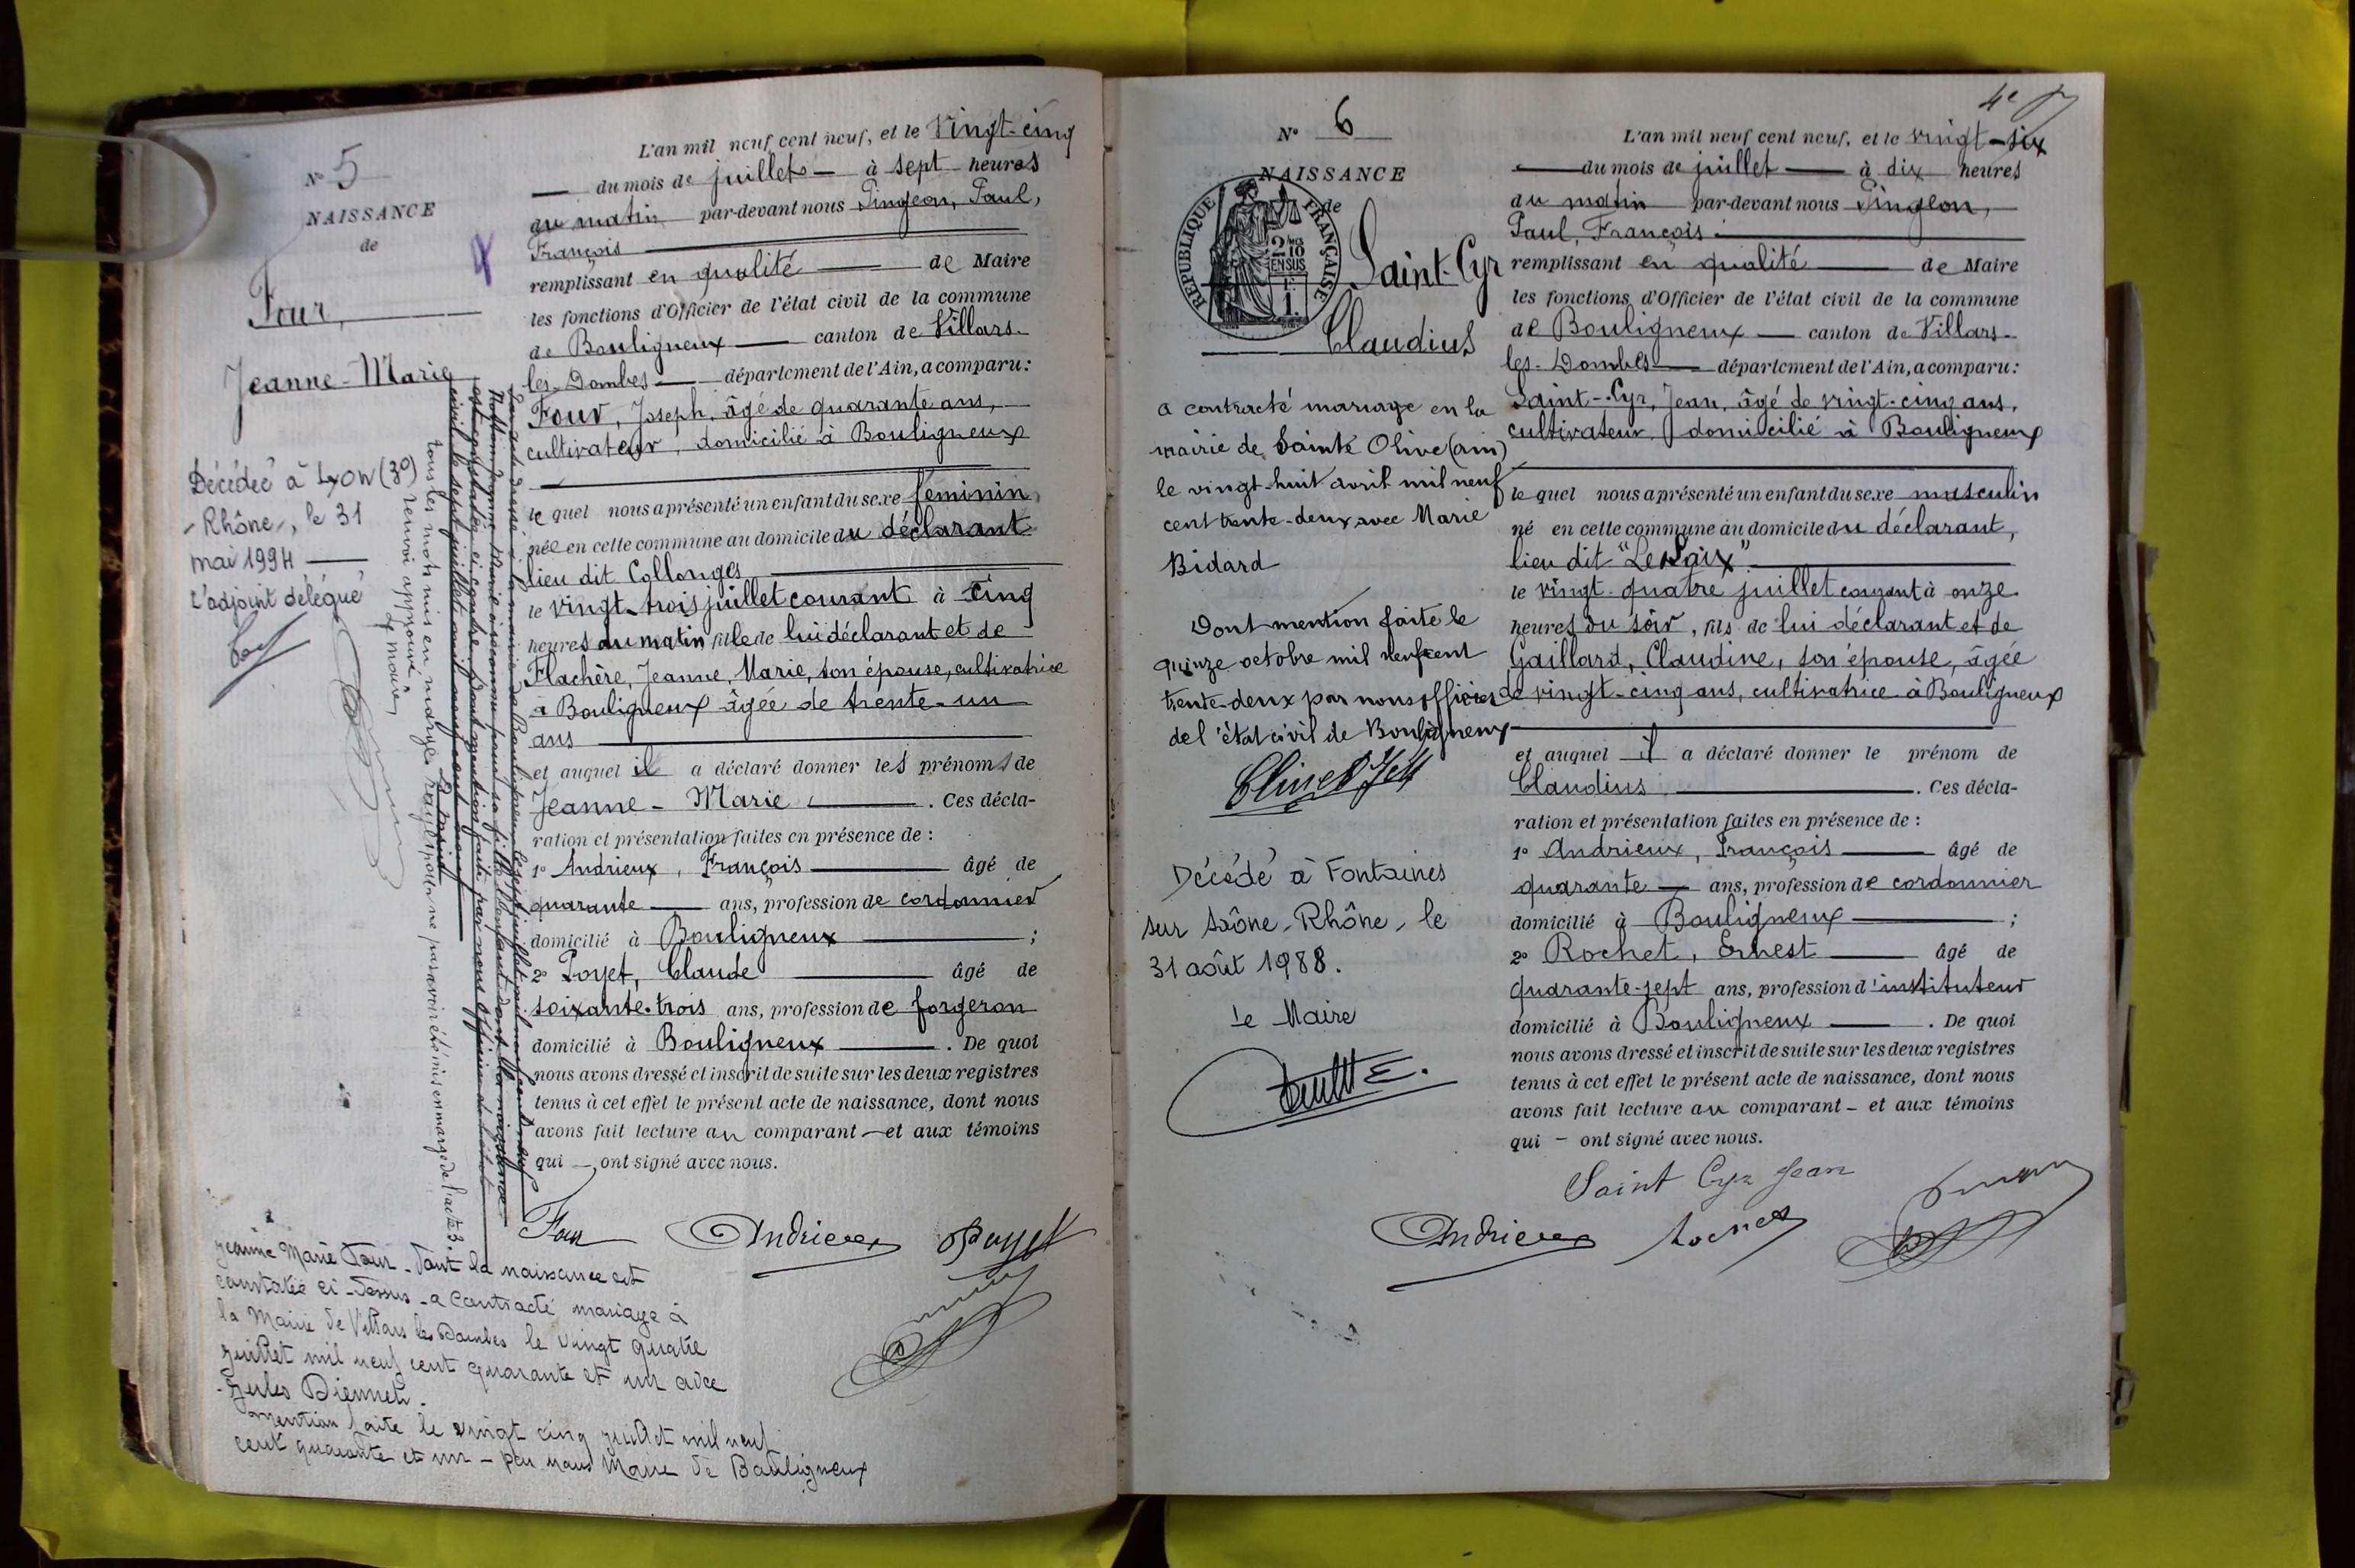 N° 5
NAISSANCE
de
Four,
Jeanne-Marie
Décédée à Lyon (3e)
- Rhône -, le 31
mai 1994
L'adjoint délégué
tous les mots mis en marge rayés pour ne pas avoir été mis en marge de l'acte 3.
renvoi approuvé
Le maire,
L'an mil neuf cent neuf, et le vingt-cinq
du mois de juillet à sept heures
du matin par-devant nous Pingeon, Paul,
François
remplissant en qualité de Maire
les fonctions d'Officier de l'état civil de la commune
de Bouligneux canton de Villars-
les-Dombes département de l'Ain, a comparu:
Four, Joseph, âgé de quarante ans,
cultivateur, domicilié à Bouligneux
le quel nous a présenté un enfant du sexe féminin,
née en cette commune au domicile du déclarant
lieu dit Collonges
le vingt-trois juillet courant à cinq
heures du matin fille de lui déclarant et de
Flachère, Jeanne, Marie, son épouse, cultivatrice
à Bouligneux âgée de trente-un
ans
et auquel il a déclaré donner les prénoms de
Jeanne-Marie. Ces décla-
ration et présentation faites en présence de :
1° Andrieux, François âgé de
quarante ans, profession de cordonnier
domicilié à Bouligneux ;
2° Poyet, Claude âgé de
soixante-trois ans, profession de forgeron
domicilié à Bouligneux. De quoi
nous avons dressé et inscrit de suite sur les deux registres
tenus à cet effet le présent acte de naissance, dont nous
avons fait lecture au comparant - et aux témoins
qui - ont signé avec nous.
Four Andrieux Poyet
Jeanne Marie Four - dont la naissance est
constatée ci-dessus - a contracté mariage à
la Mairie de Villars les Dombes le vingt quatre
juillet mil neuf cent quarante et un avec
Jules
mention faite le vingt cinq juillet mil neuf
cent quarante et un - par nous Maire de Bouligneux
4e
N° 6
NAISSANCE
de
RÉPUBLIQUE FRANÇAISE
2/10 EN SUS
Saint-Cyr
Claudius
a contracté mariage en la
mairie de Sainte Olive (ain)
le vingt-huit avril mil neuf
cent trente-deux avec Marie
Bidard
Dont mention faite le
quinze octobre mil neuf cent
trente-deux par nous officier
de l'état civil de Bouligneux
Décédé à Fontaines
sur Saône - Rhône, le
31 août 1988.
Le Maire
L'an mil neuf cent neuf, et le vingt-six
du mois de juillet à dix heures
du matin par-devant nous Pingeon,
Paul, François
remplissant en qualité de Maire
les fonctions d'Officier de l'état civil de la commune
de Bouligneux canton de Villars-
les-Dombes département de l'Ain, a comparu:
Saint-Cyr, Jean, âgé de vingt-cinq ans,
cultivateur, domicilié à Bouligneux
le quel nous a présenté un enfant du sexe masculin
né en cette commune au domicile du déclarant,
lieu dit "Le Saix"
le vingt-quatre juillet courant à onze
heures du soir, fils de lui déclarant et de
Gaillard, Claudine, son épouse, âgée
de vingt-cinq ans, cultivatrice à Bouligneux
et auquel il a déclaré donner le prénom de
Claudius. Ces décla-
ration et présentation faites en présence de :
1° Andrieux, François âgé de
quarante ans, profession de cordonnier
domicilié à Bouligneux ;
2° Rochet, Ernest âgé de
quarante-sept ans, profession d'instituteur
domicilié à Bouligneux. De quoi
nous avons dressé et inscrit de suite sur les deux registres
tenus à cet effet le présent acte de naissance, dont nous
avons fait lecture au comparant - et aux témoins
qui - ont signé avec nous.
Saint Cyr Jean
Andrieux Rochet